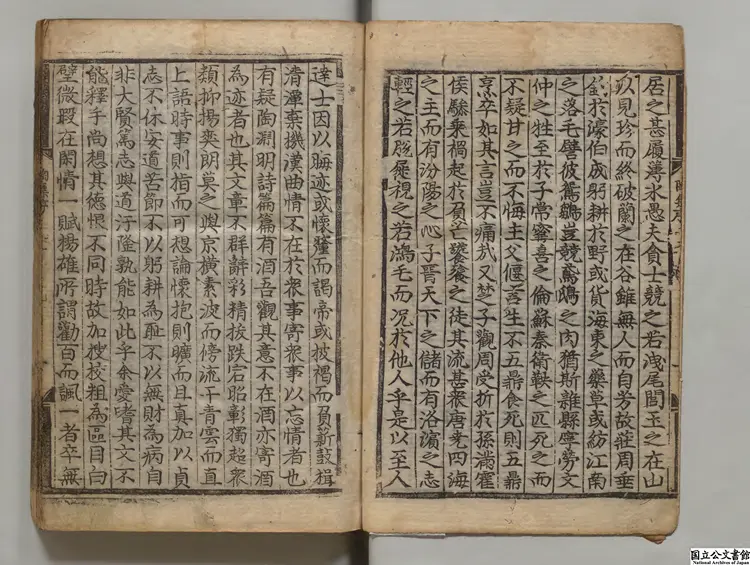 居之甚履薄氷愚夫貪士競之若洩尾閭玉之在山
以見珍而終破蘭之在谷雖無人而自芳故莊周垂
釣於濠伯成躬耕於野或貨海東之藥草或紡江南
之落毛譬彼鴛鶵豈競鳶鴟之肉猶斯雜縣寧勞文
仲之牲至於子常甯喜之倫蘇秦衛鞅之匹死之而
不疑甘之而不悔主父偃言生不五鼎食死則五鼎
烹卒如其言豈不痛哉又楚子觀周受折於孫滿霍
侯驂乗禍起於負芒饕餮之徒其流甚衆唐堯四海
之主而有汾陽之心子晋天下之儲而有洛濵之志
輕之若脫屣視之若鴻毛而况於他人乎是以至人
達士因以晦迹或懷釐而謁帝或披褐而負薪鼓楫
清潭棄機漢曲情不在於衆事寄衆事以忘情者也
有疑陶淵明詩篇篇有酒吾觀其意不在酒亦寄酒
為迹者也其文章不群辭彩精拔跌宕昭彰獨超衆
類抑揚爽朗莫之與京橫素波而傍流干青雲而直
上語時事則指而可想論懷抱則曠而且真加以貞
志不休安道苦節不以躬耕為耻不以無財為病自
非大賢篤志與道汙隆孰能如此乎余愛嗜其文不
能釋手尚想其德恨不同時故加搜挍粗為區目白
璧微瑕在閑情一賦揚雄所謂勸百而諷一者卒無
国立公文書館
National Archives of Japan